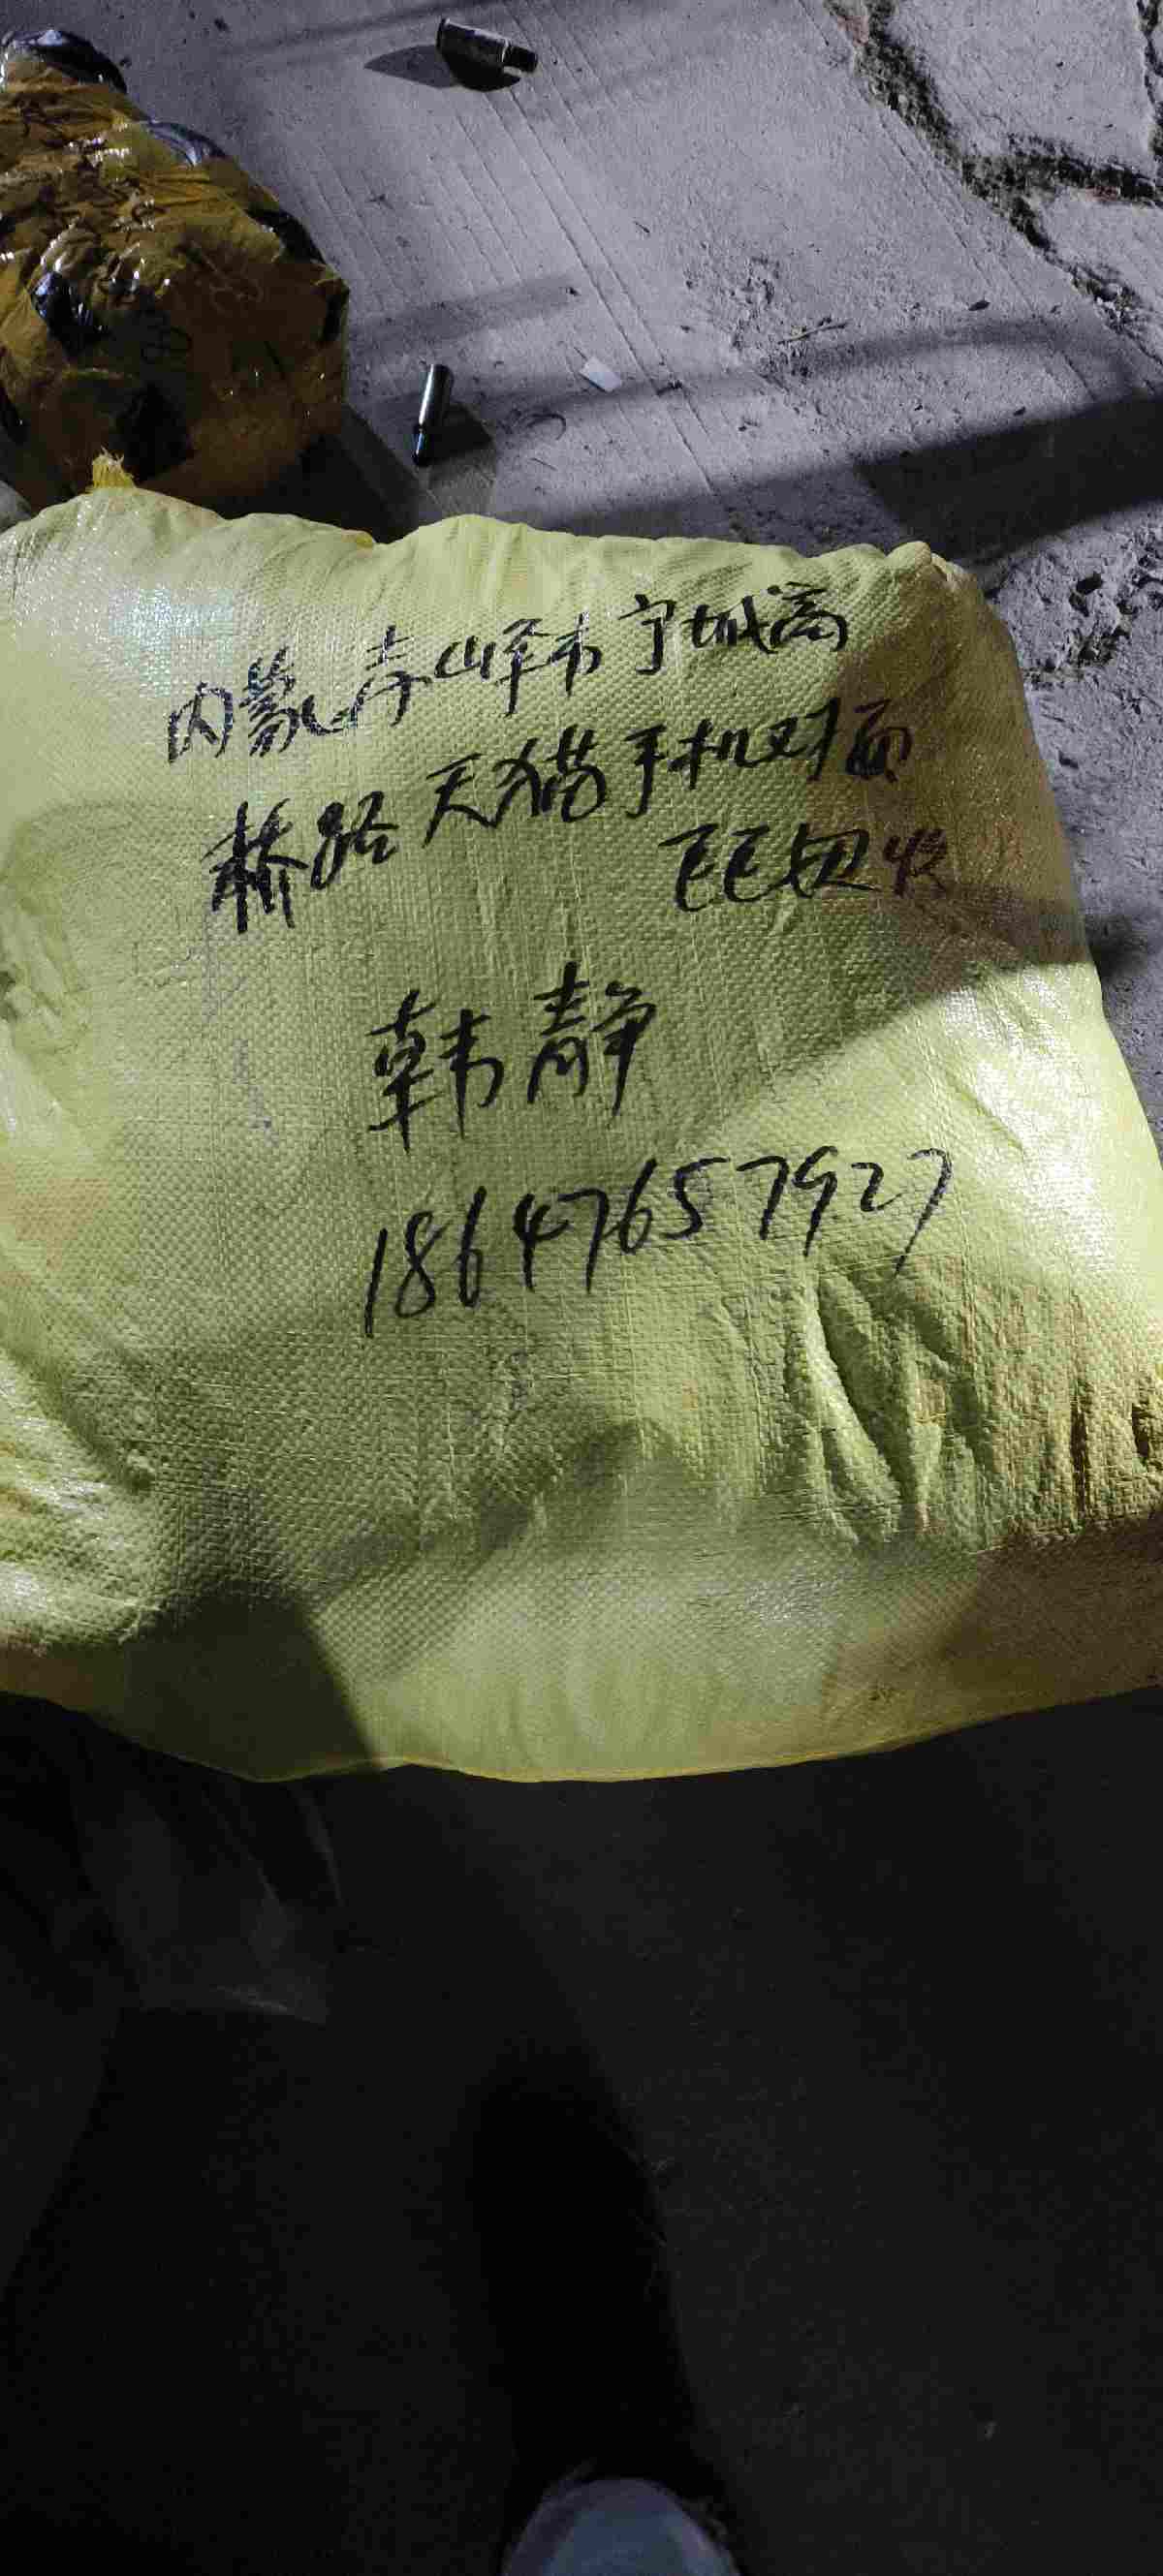 内蒙赤峰市宁城高
桥路天猫手机对面
巴巴包收
韩静
18647657927